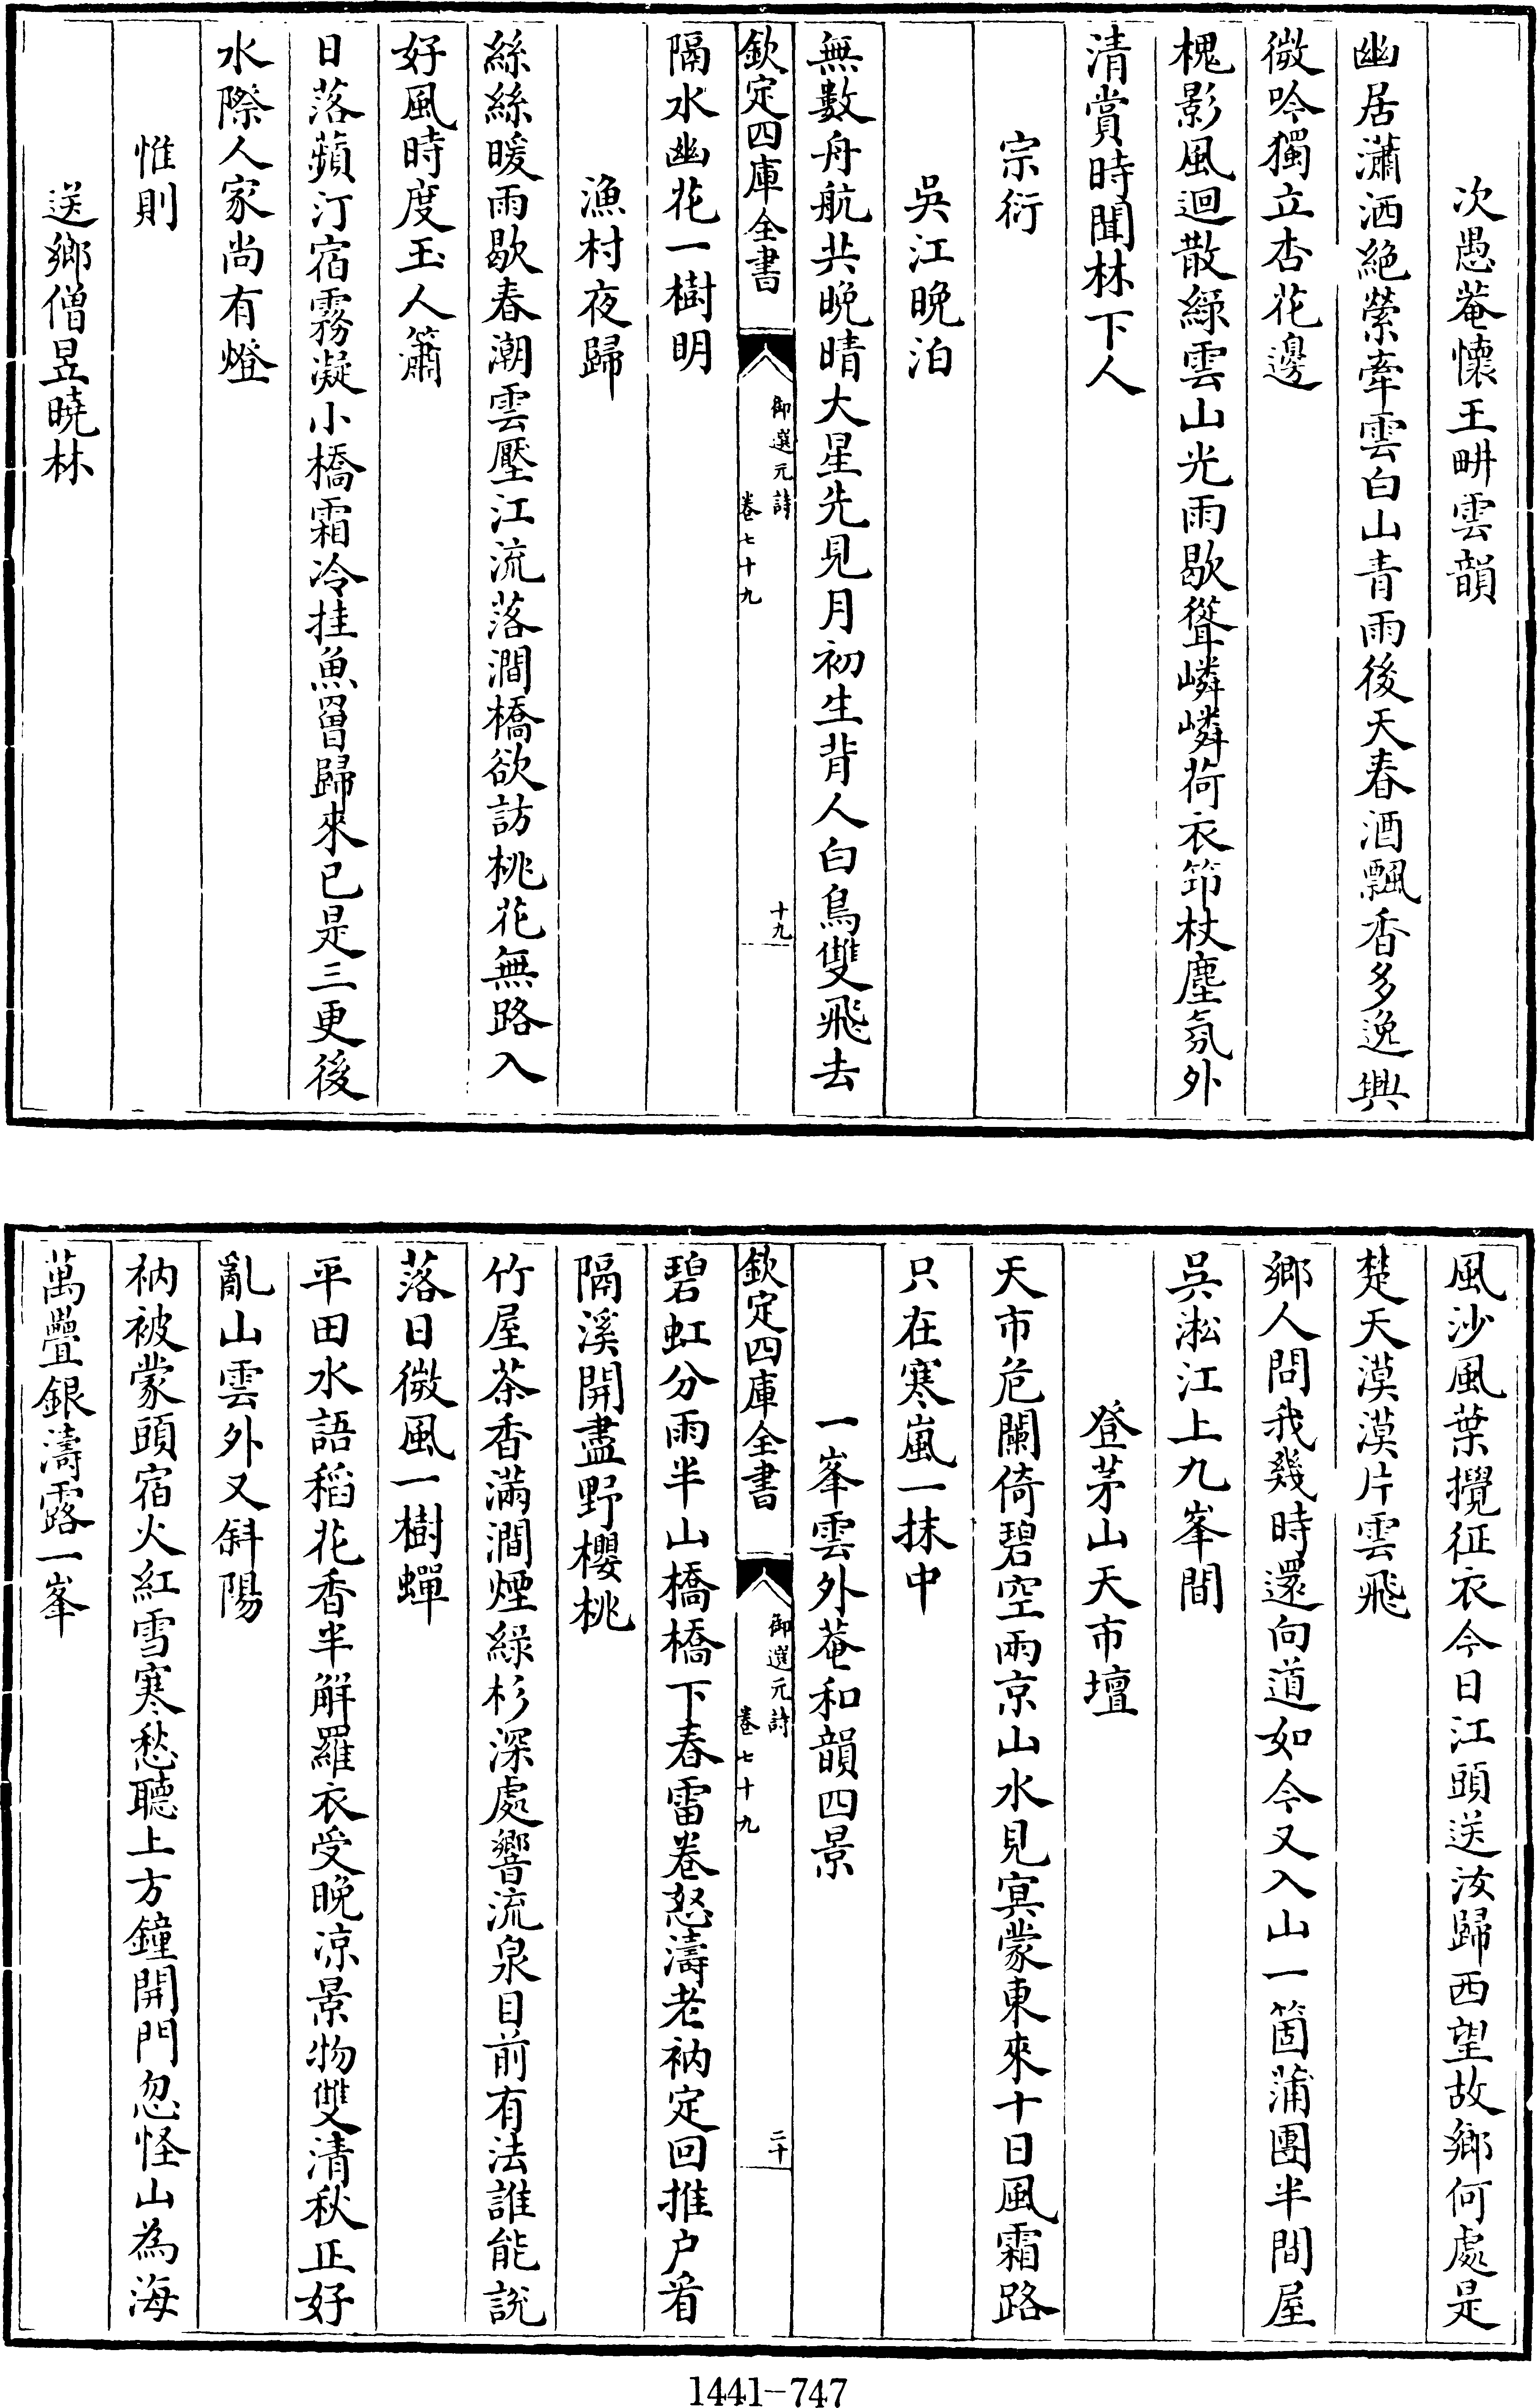 次愚菴懷王畊雲韻
幽居瀟洒絶縈牽雲白山青雨後天春酒飄香多逸興
微吟獨立杏花邊
槐影風迴散緑雲山光雨歇聳嶙嶙荷衣笻杖塵氛外
清賞時聞林下人
宗衍
吳江晚泊
無數舟航共晚晴大星先見月初生背人白鳥雙飛去
欽定四庫全書
御選元詩
卷七十九
十九
隔水幽花一樹明
漁村夜歸
絲絲暖雨歇春潮雲壓江流落澗橋欲訪桃花無路入
好風時度玉人簫
日落蘋汀宿霧凝小橋霜冷挂魚罾歸來已是三更後
水際人家尚有燈
惟則
送鄉僧昱曉林
風沙風葉攪征衣今日江頭送汝歸西望故鄉何處是
楚天漠漠片雲飛
鄉人問我幾時還向道如今又入山一箇蒲團半間屋
吳淞江上九峯間
登茅山天市壇
天市危闌倚碧空兩京山水見冥蒙東來十日風霜路
只在寒嵐一抹中
一峯雲外菴和韻四景
欽定四庫全書
御選元詩
卷七十九
二十
碧虹分雨半山橋橋下春雷卷怒濤老衲定回推户看
隔溪開盡野櫻桃
竹屋茶香滿澗煙緑杉深處響流泉目前有法誰能說
落日微風一樹蟬
平田水語稻花香半解羅衣受晚凉景物雙清秋正好
亂山雲外又斜陽
衲被蒙頭宿火紅雪寒愁聽上方鐘開門忽怪山為海
萬疊銀濤露一峯
1441-747